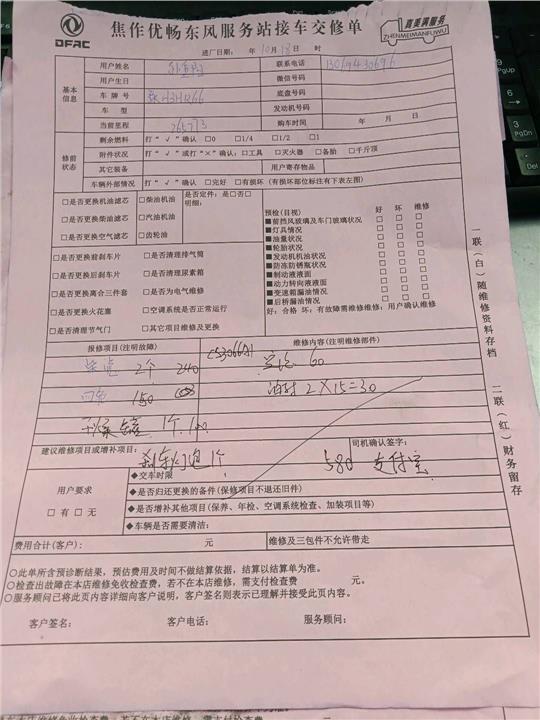 DFAC
焦作优畅东风服务站接车交修单
真美满服务
ZHENMEIMANFUWU
进厂日期: 年10月18日 时
基本信息
用户姓名 联系电话
用户生日 微信号码
车牌号 底盘号码
车 型 发动机号码
当前里程 265773 购车时间 年 月 日
修前状态
剩余燃料 打“√”确认 □0 □1/4 □1/2 □1
附件状况 打“√”或打“×”确认:□工具 □灭火器 □备胎 □千斤顶
其它装备 用户寄存物品
车辆外部情况 打“√”确认 □完好 □有损坏(有损坏部位标注有下表左图)
□是否更换机油滤芯 □柴油机油 是否定件:是□否□
□是否更换柴油滤芯 □汽油机油 明细:
□是否更换空气滤芯 □齿轮油
□是否更换前刹车片 □是否清理排气筒
□是否更换后刹车片 □是否清理尿素箱
□是否更换离合三件套 □是否为电气维修
□是否更换火花塞 □空调系统是否正常运行
□是否清理节气门 □其它项目维修及更换
预检(目视) 好 坏 维修
■前挡风玻璃及车门玻璃状况 □ □ □
■灯具情况 □ □ □
■油量状况 □ □ □
■轮胎状况 □ □ □
■发动机机油状况 □ □ □
■防冻防锈瓶状况 □ □ □
■制动液液面 □ □ □
■动力转向液液面 □ □ □
■变速箱漏油情况 □ □ □
■后桥漏油情况 □ □ □
好:合格 坏:有故障需维修维修:用户确认维修
报修项目(注明故障) 维修内容(注明维修部件)
柴滤 2个 240 60
150 2×15=30
1个 100
建议维修项目或增补项目: 刹车灯泡1个
司机确认签字:
580 支付宝
用户要求
□有 □无
◆交车时限
◆是否归还更换的备件(保修项目不退还旧件)
◆是否增补其他项目(保养、年检、空调系统检查、加装项目等)
◆车辆是否需要清洁:
费用合计(客户): 元 维修及三包件不允许带走
○此单所含预诊断结果,预估费用及时间不做结算依据,结算以结算单为准。
○检查出故障在本店维修免收检查费,若不在本店维修,需支付检查费 元。
○服务顾问已将此页内容详细向客户说明,客户签名则表示已理解并接受此页内容。
客户签名: 客户电话: 服务顾问:
一联(白)随维修资料存档
二联(红)财务留存